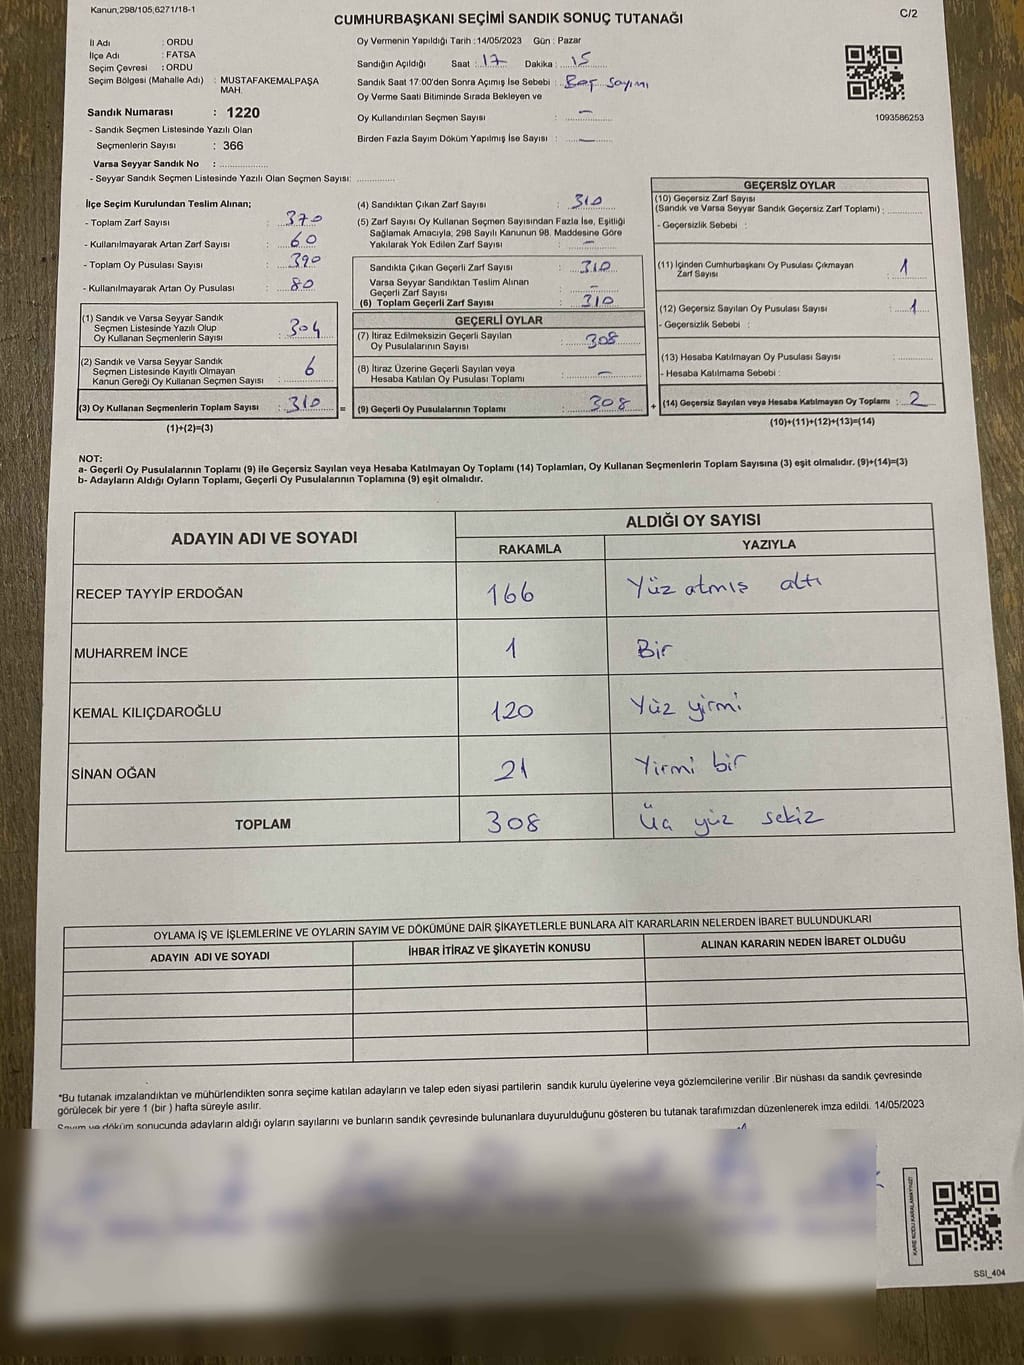 Kanun,298/105,6271/18-1
CUMHURBAŞKANI SEÇİMİ SANDIK SONUÇ TUTANAĞI
C/2
İl Adı : ORDU
İlçe Adı : FATSA
Seçim Çevresi : ORDU
Seçim Bölgesi (Mahalle Adı) : MUSTAFAKEMALPAŞA
MAH.
Sandık Numarası : 1220
- Sandık Seçmen Listesinde Yazılı Olan
Seçmenlerin Sayısı : 366
Varsa Seyyar Sandık No :
- Seyyar Sandık Seçmen Listesinde Yazılı Olan Seçmen Sayısı:
Oy Vermenin Yapıldığı Tarih :14/05/2023 Gün : Pazar
Sandığın Açıldığı Saat : 17 Dakika : 15
Sandık Saat 17:00'den Sonra Açımış İse Sebebi : Boş Sayımı
Oy Verme Saati Bitiminde Sırada Bekleyen ve
Oy Kullandırılan Seçmen Sayısı : —
Birden Fazla Sayım Döküm Yapılmış İse Sayısı : —
1093586253
İlçe Seçim Kurulundan Teslim Alınan;
- Toplam Zarf Sayısı : 370
- Kullanılmayarak Artan Zarf Sayısı : 60
- Toplam Oy Pusulası Sayısı : 390
- Kullanılmayarak Artan Oy Pusulası : 80
(1) Sandık ve Varsa Seyyar Sandık
Seçmen Listesinde Yazılı Olup
Oy Kullanan Seçmenlerin Sayısı : 304
(2) Sandık ve Varsa Seyyar Sandık
Seçmen Listesinde Kayıtlı Olmayan
Kanun Gereği Oy Kullanan Seçmen Sayısı : 6
(3) Oy Kullanan Seçmenlerin Toplam Sayısı : 310 =
(1)+(2)=(3)
(4) Sandıktan Çıkan Zarf Sayısı : 310
(5) Zarf Sayısı Oy Kullanan Seçmen Sayısından Fazla İse, Eşitliği
Sağlamak Amacıyla, 298 Sayılı Kanunun 98. Maddesine Göre
Yakılarak Yok Edilen Zarf Sayısı : —
Sandıkta Çıkan Geçerli Zarf Sayısı : 310
Varsa Seyyar Sandıktan Teslim Alınan
Geçerli Zarf Sayısı : —
(6) Toplam Geçerli Zarf Sayısı : 310
GEÇERLİ OYLAR
(7) İtiraz Edilmeksizin Geçerli Sayılan
Oy Pusulalarının Sayısı : 308
(8) İtiraz Üzerine Geçerli Sayılan veya
Hesaba Katılan Oy Pusulası Toplamı : —
(9) Geçerli Oy Pusulalarının Toplamı : 308 +
GEÇERSİZ OYLAR
(10) Geçersiz Zarf Sayısı
(Sandık ve Varsa Seyyar Sandık Geçersiz Zarf Toplamı) :
- Geçersizlik Sebebi :
(11) İçinden Cumhurbaşkanı Oy Pusulası Çıkmayan
Zarf Sayısı : 1
(12) Geçersiz Sayılan Oy Pusulası Sayısı : 1
- Geçersizlik Sebebi :
(13) Hesaba Katılmayan Oy Pusulası Sayısı :
- Hesaba Katılmama Sebebi :
(14) Geçersiz Sayılan veya Hesaba Katılmayan Oy Toplamı : 2
(10)+(11)+(12)+(13)=(14)
NOT:
a- Geçerli Oy Pusulalarının Toplamı (9) ile Geçersiz Sayılan veya Hesaba Katılmayan Oy Toplamı (14) Toplamları, Oy Kullanan Seçmenlerin Toplam Sayısına (3) eşit olmalıdır. (9)+(14)=(3)
b- Adayların Aldığı Oyların Toplamı, Geçerli Oy Pusulalarının Toplamına (9) eşit olmalıdır.
ADAYIN ADI VE SOYADI
ALDIĞI OY SAYISI
RAKAMLA YAZIYLA
RECEP TAYYİP ERDOĞAN 166 Yüz atmış altı
MUHARREM İNCE 1 Bir
KEMAL KILIÇDAROĞLU 120 Yüz yirmi
SİNAN OĞAN 21 Yirmi bir
TOPLAM 308 Üç yüz sekiz
OYLAMA İŞ VE İŞLEMLERİNE VE OYLARIN SAYIM VE DÖKÜMÜNE DAİR ŞİKAYETLERLE BUNLARA AİT KARARLARIN NELERDEN İBARET BULUNDUKLARI
ADAYIN ADI VE SOYADI İHBAR İTİRAZ VE ŞİKAYETİN KONUSU ALINAN KARARIN NEDEN İBARET OLDUĞU
*Bu tutanak imzalandıktan ve mühürlendikten sonra seçime katılan adayların ve talep eden siyasi partilerin sandık kurulu üyelerine veya gözlemcilerine verilir .Bir nüshası da sandık çevresinde
görülecek bir yere 1 (bir ) hafta süreyle asılır.
Sayım ve döküm sonucunda adayların aldığı oyların sayılarını ve bunların sandık çevresinde bulunanlara duyurulduğunu gösteren bu tutanak tarafımızdan düzenlenerek imza edildi. 14/05/2023
KARE KODU KARALAMAYINIZ!
SSI_404